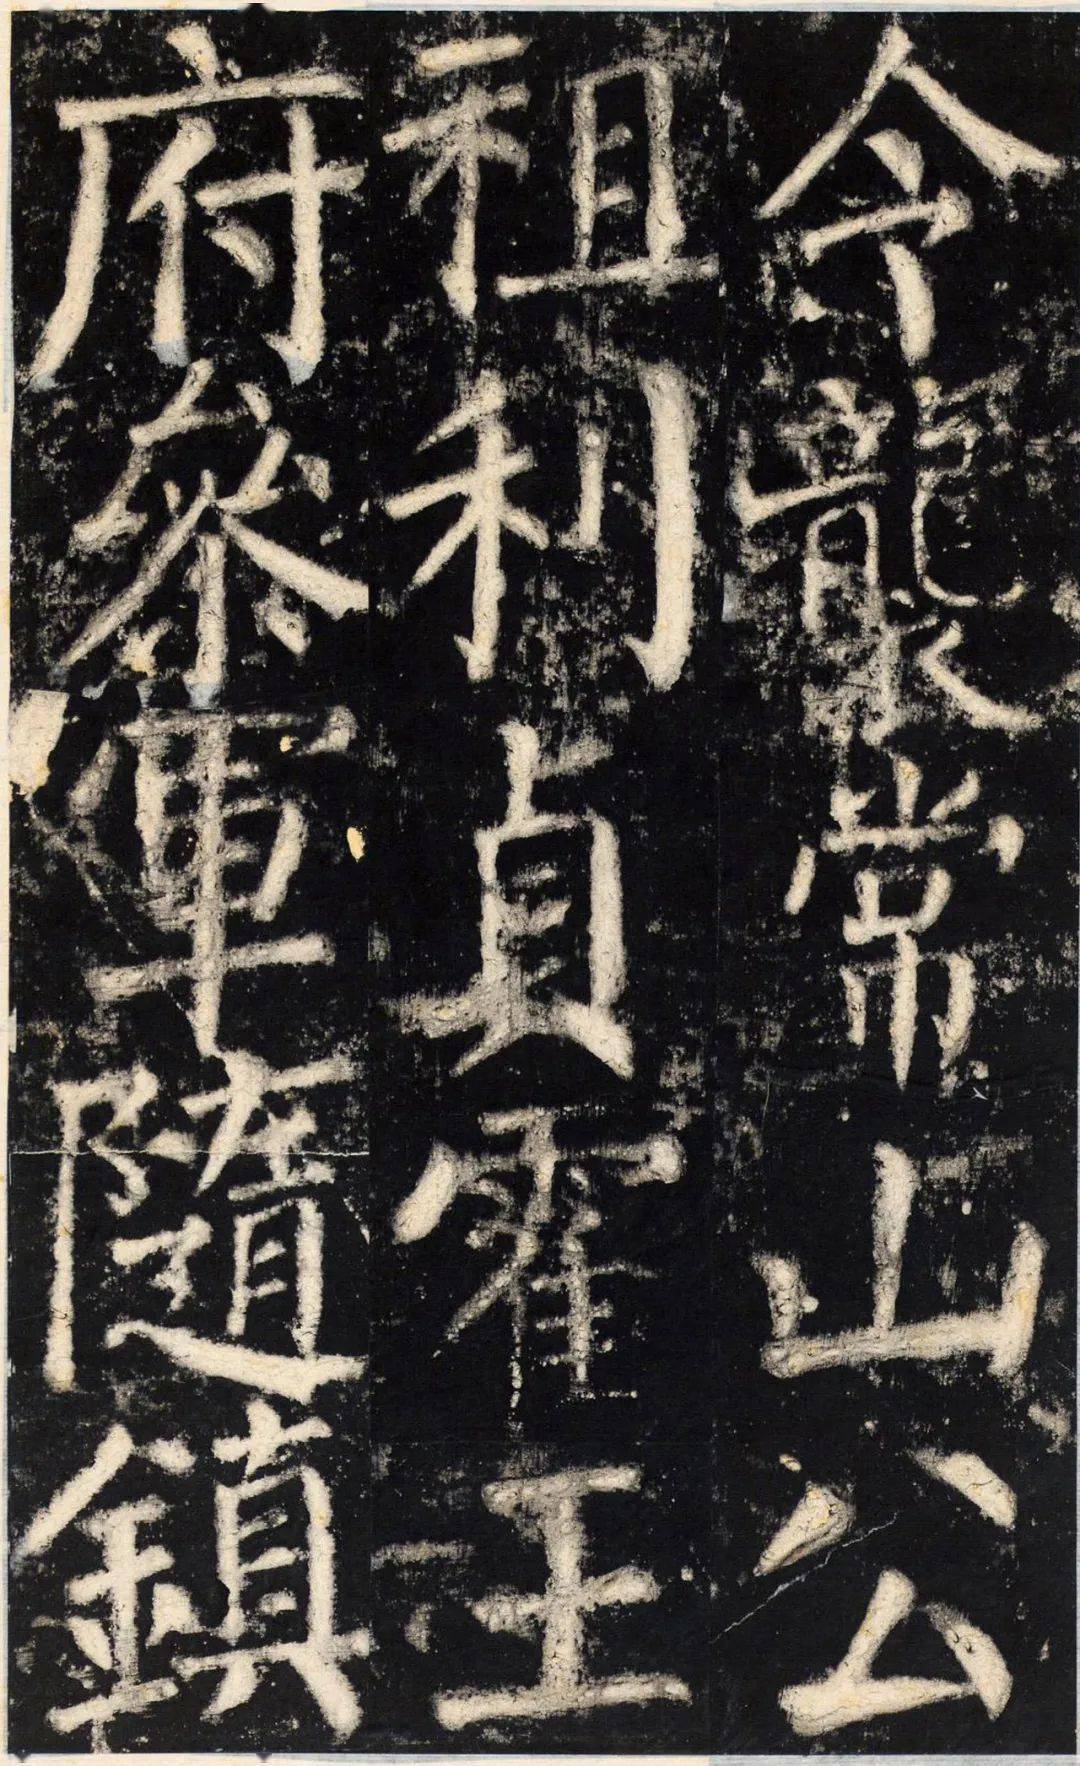 令龔常山公
祖利貞霍王
府叅軍隨鎮